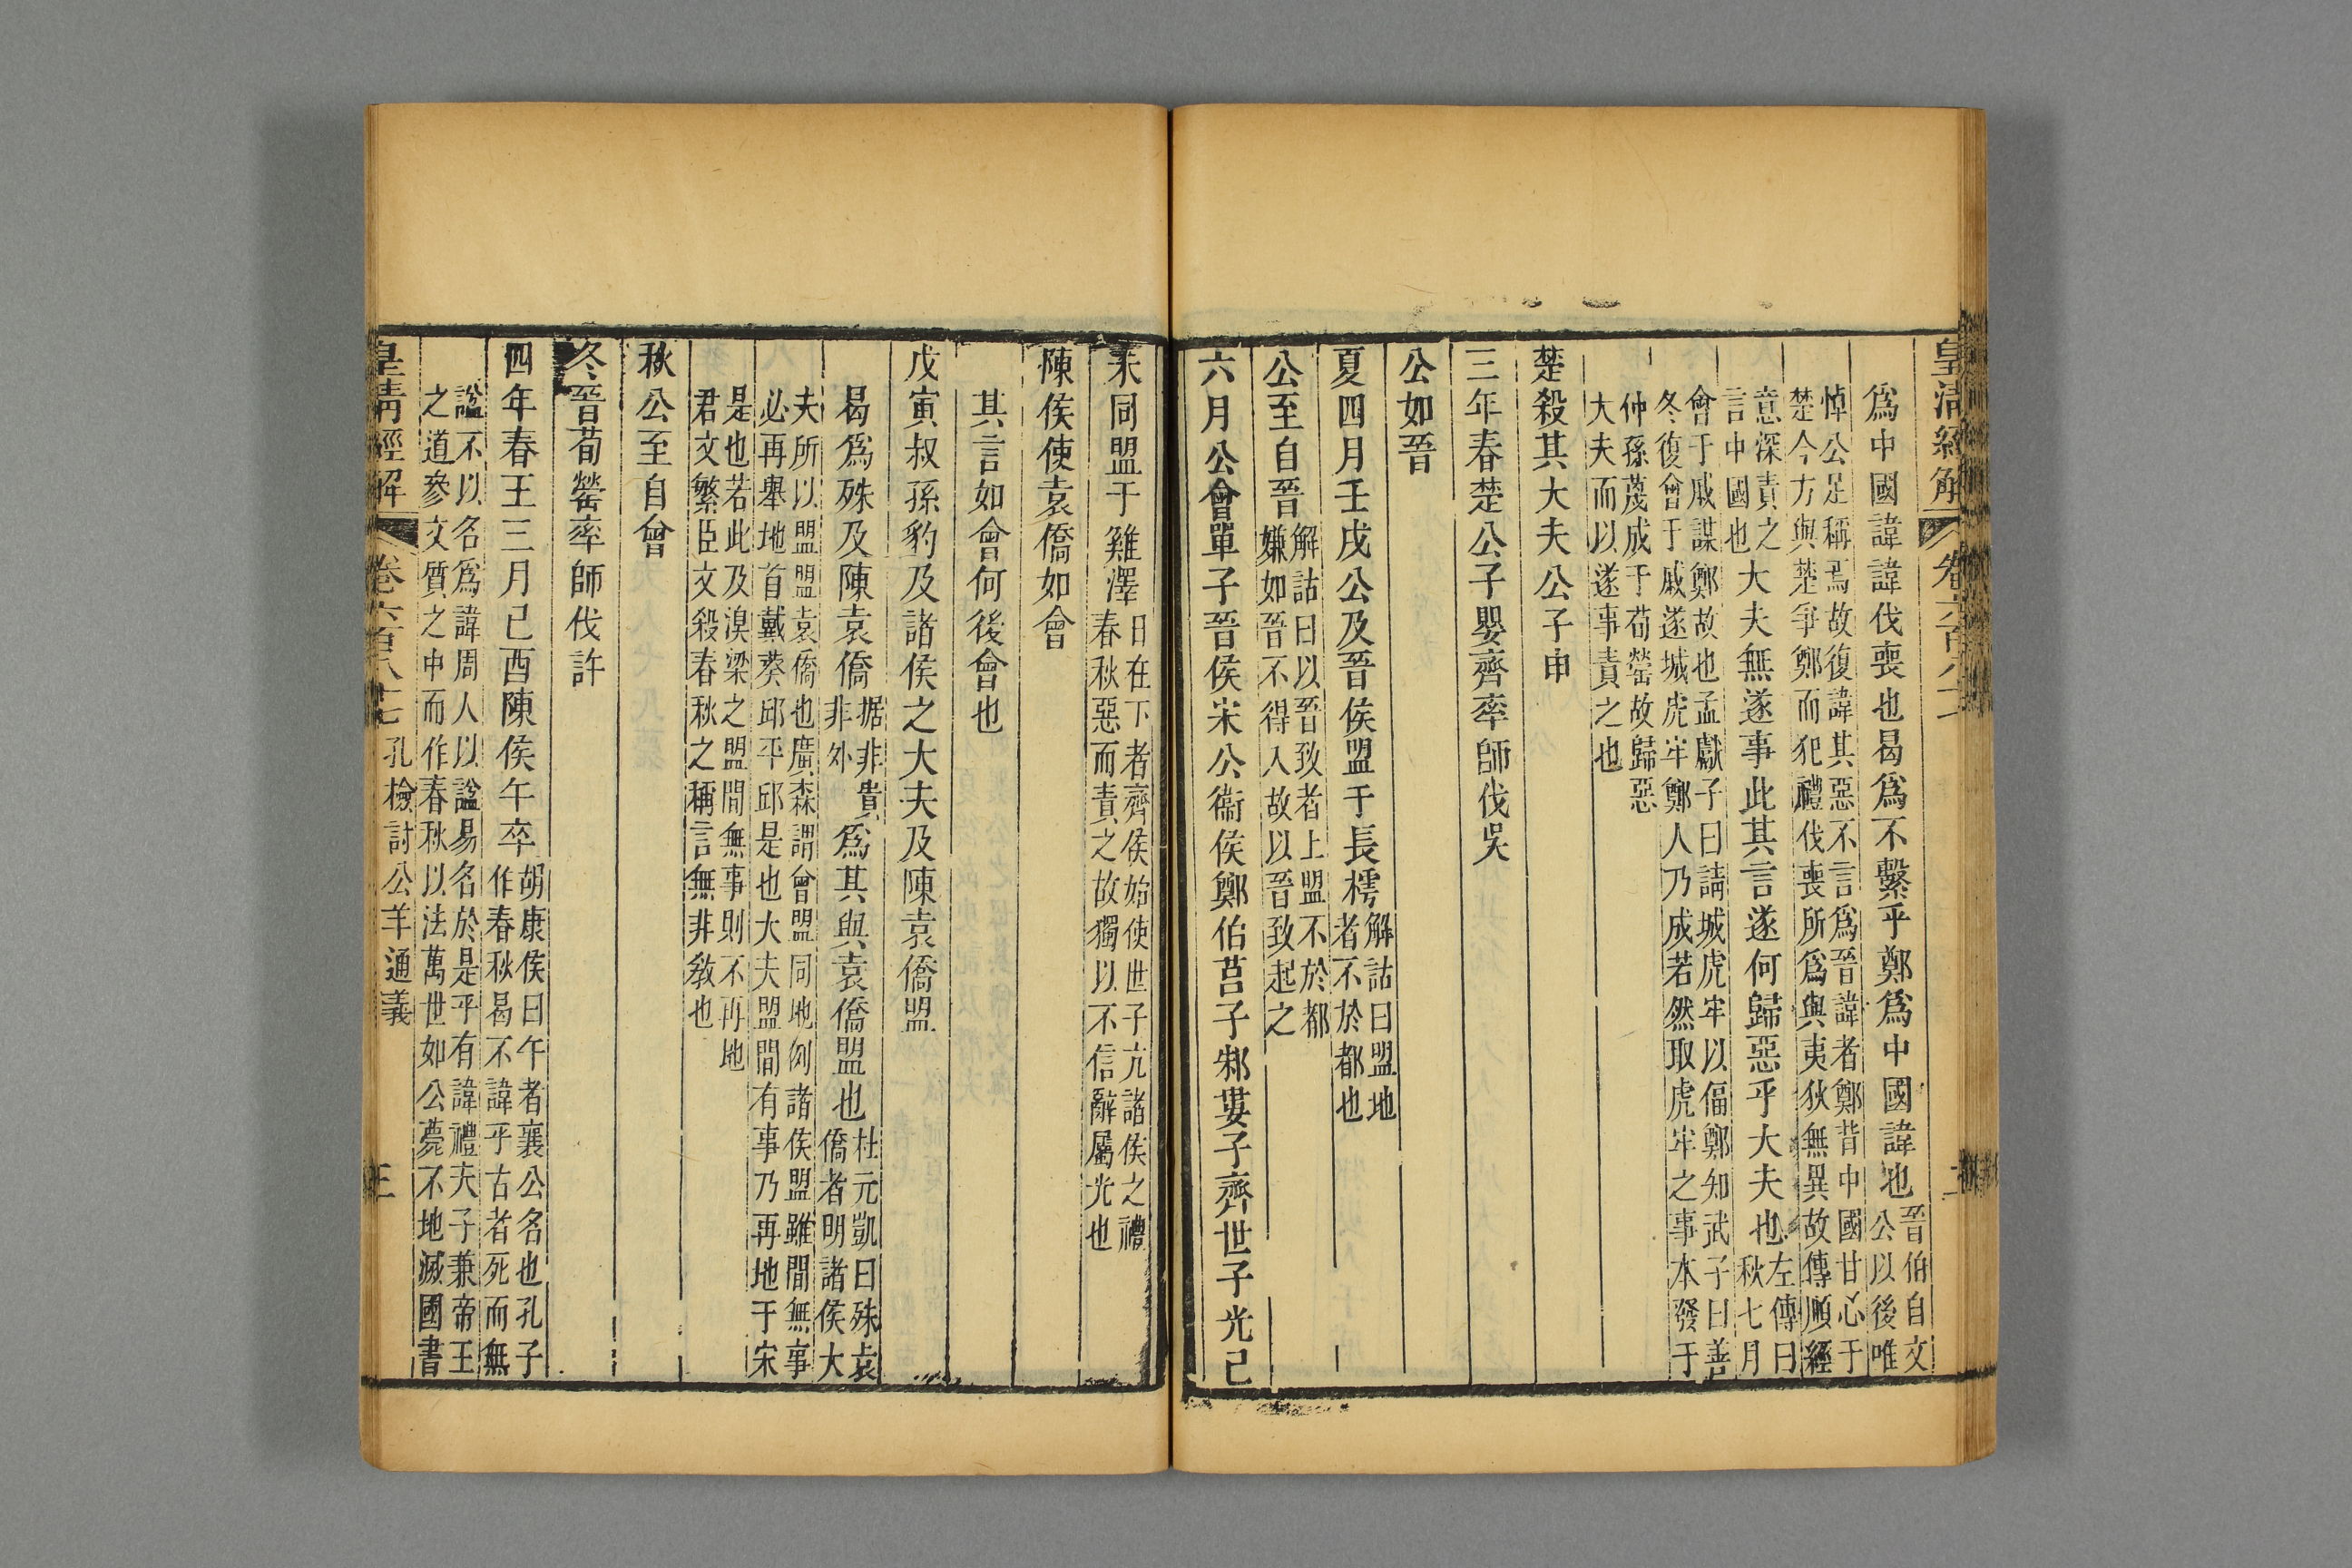 皇清經解 卷六百八十七
爲中國諱諱伐喪也曷爲不繫乎鄭爲中國諱也晉伯自文公以後唯
悼公足稱焉故復諱其惡不言爲晉諱者鄭背中國甘心于
楚今方與楚爭鄭而犯禮伐喪所爲與夷狄無異故傳順經
意深責之言中國也大夫無遂事此其言遂何歸惡乎大夫也左傳曰秋七月
會于戚謀鄭故也孟獻子曰請城虎牢以偪鄭知武子曰善
冬復會于戚遂城虎牢鄭人乃成若然取虎牢之事本發于
仲孫蔑成于荀罃故歸惡
大夫而以遂事責之也
楚殺其大夫公子申
三年春楚公子嬰齊率師伐吳
公如晉
夏四月壬戌公及晉侯盟于長樗解詁曰盟地者不於都也
公至自晉解詁曰以晉致者上盟不於都嫌如晉不得入故以晉致起之
六月公會單子晉侯宋公衞侯鄭伯莒子邾婁子齊世子光己
未同盟于雞澤日在下者齊侯始使世子亢諸侯之禮春秋惡而責之故獨以不信辭屬光也
陳侯使袁僑如會
其言如會何後會也
戊寅叔孫豹及諸侯之大夫及陳袁僑盟
曷爲殊及陳袁僑据非貴非外爲其與袁僑盟也杜元凱曰殊袁僑者明諸侯大
夫所以盟盟袁僑也廣森謂會盟同地例諸侯盟雖間無事
必再舉地首戴葵邱平邱是也大夫盟間有事乃再地于宋
是也若此及湨梁之盟間無事則不再地
君文繁臣文殺春秋之稱言無非敎也
秋公至自會
冬晉荀罃率師伐許
四年春王三月己酉陳侯午卒胡康侯曰午者襄公名也孔子作春秋曷不諱乎古者死而無
諡不以名爲諱周人以諡易名於是乎有諱禮夫子兼帝王
之道參文質之中而作春秋以法萬世如公薨不地滅國書
皇清經解 卷六百八十七 孔檢討公羊通義 三